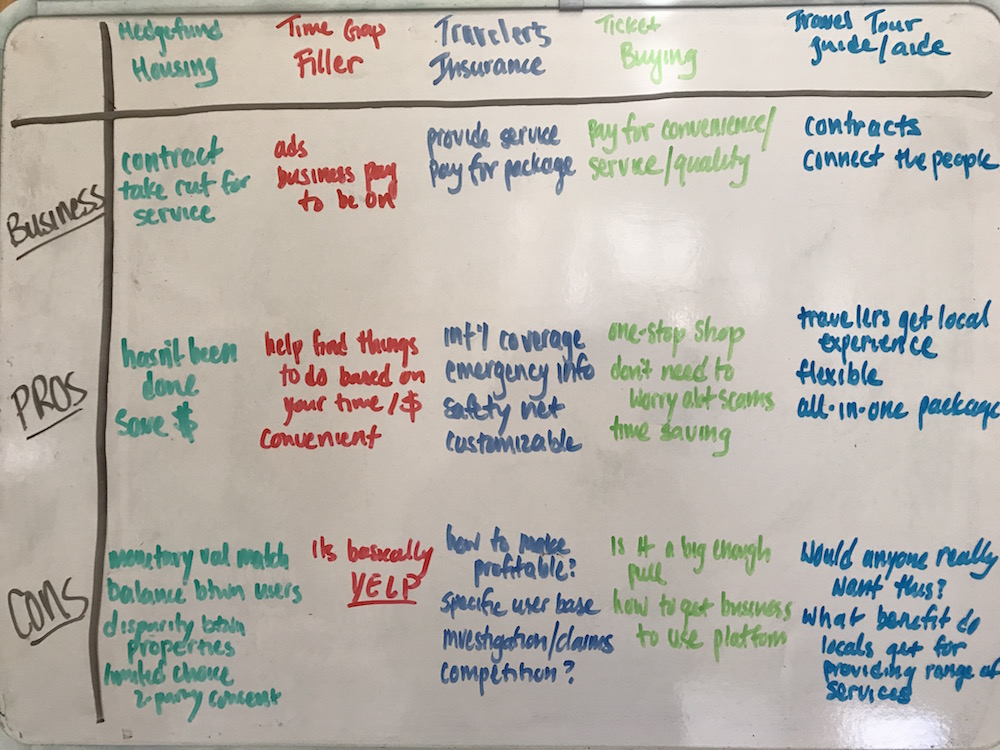 Hedgefund
Housing
Time Gap
Filler
Travelers
Insurance
Ticket
Buying
Travel Tour
guide/aide
BUSINESS
contract
take cut for
service
ads
business pay
to be on
provide service
pay for package
Pay for convenience/
service/quality
contracts
connect the people
PROS
hasn't been
done
save $
help find things
to do based on
your time/$
convenient
int'l coverage
emergency info
safety net
customizable
one-stop shop
don't need to
worry abt scams
time saving
travelers get local
experience
flexible
all-in-one package
CONS
monetary val match
balance btwn users
disparity btwn
properties
limited choice
2-party consent
its basically
YELP
how to make
profitable?
specific user base
investigation/claims
competition?
Is it a big enough
pull
how to get business
to use platform
Would anyone really
want this?
What benefit do
locals get for
providing range of
services